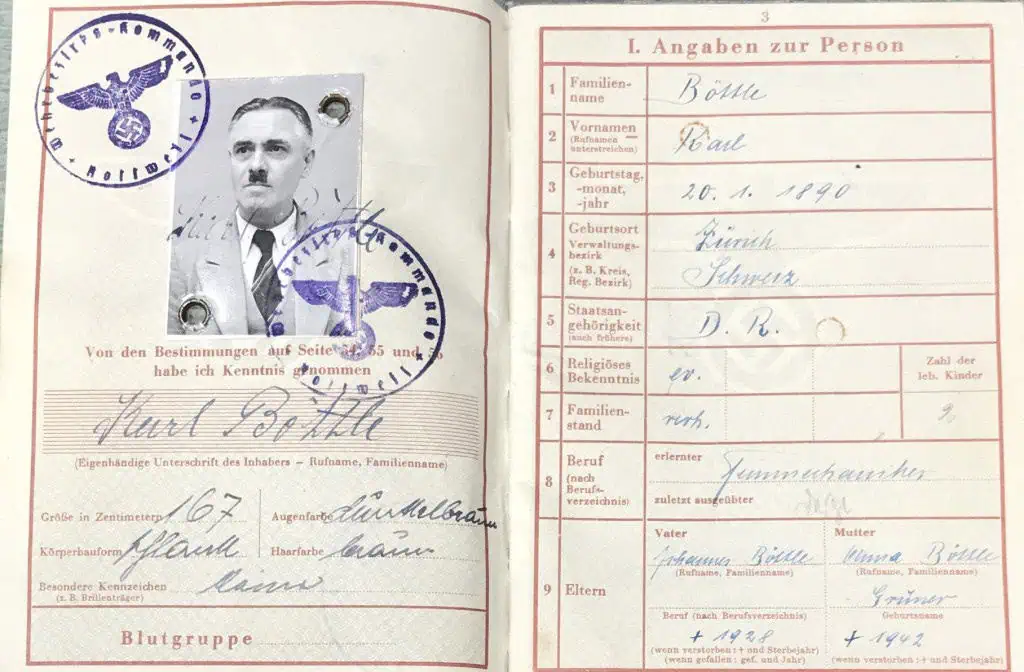 Wehrbezirks-Kommando + Rottweil +
Wehrbezirks-Kommando + Rottweil +
Von den Bestimmungen auf Seite
habe ich Kenntnis genommen
Karl Böttle
(Eigenhändige Unterschrift des Inhabers – Rufname, Familienname)
Größe in Zentimetern 167
Augenfarbe dunkelbraun
Körperbauform schlank
Haarfarbe braun
Besondere Kennzeichen keine
(z. B. Brillenträger)
Blutgruppe
3
I. Angaben zur Person
1 Familien-
name
Böttle
2 Vornamen
(Rufnamen
unterstreichen)
Karl
3 Geburtstag,
-monat,
-jahr
20. 1. 1890
4 Geburtsort
Verwaltungs-
bezirk
(z. B. Kreis,
Reg. Bezirk)
Zürich
Schweiz
5 Staatsan-
gehörigkeit
(auch frühere)
D. R.
6 Religiöses
Bekenntnis
ev.
Zahl der
leb. Kinder
2
7 Familien-
stand
verh.
8 Beruf
(nach
Berufs-
verzeichnis)
erlernter
zuletzt ausgeübter
9 Eltern
Vater
Johannes Böttle
(Rufname, Familienname)
Beruf (nach Berufsverzeichnis)
+ 1928
(wenn verstorben: + und Sterbejahr)
(wenn gefallen: gef. und Jahr)
Mutter
Anna Böttle
(Rufname, Familienname)
Grüner
Geburtsname
+ 1942
(wenn verstorben: + und Sterbejahr)